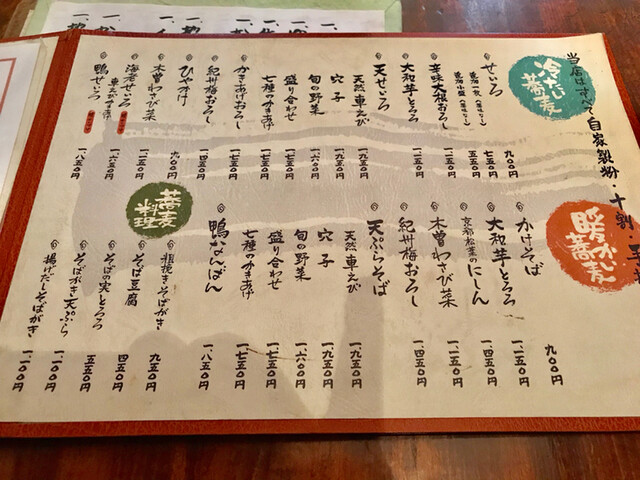 当店はすべて自家製粉・十割・手
冷たい蕎麦
せいろ 九〇〇円
蕎麦一枚 七五〇円
蕎麦小盛 五五〇円
辛味大根おろし 一、一五〇円
大和芋とろろ 一、四五〇円
天せいろ
天然車えび 一、九五〇円
穴子 一、九五〇円
旬の野菜 一、六〇〇円
盛り合わせ 一、七五〇円
七種のかきあげ 一、七五〇円
かきあげおろし 一、七五〇円
紀州梅おろし 一、四五〇円
ひやかけ 九〇〇円
木曽わさび菜 一、二五〇円
海老せいろ 一、六五〇円
車えびかきあげ
鴨せいろ 一、八五〇円
暖かい蕎麦
かけそば 九〇〇円
大和芋とろろ 一、二五〇円
京都松葉のにしん 一、四五〇円
木曽わさび菜 一、二五〇円
紀州梅おろし 一、四五〇円
天ぷらそば
天然車えび 一、九五〇円
穴子 一、九五〇円
旬の野菜 一、六〇〇円
盛り合わせ 一、七五〇円
七種のかきあげ 一、七五〇円
鴨なんばん 一、八五〇円
蕎麦料理
粗挽きそばがき 九五〇円
そば豆腐 四五〇円
そばの実とろろ 五五〇円
そばがき天ぷら 一、一〇〇円
揚げだしそばがき 一、一〇〇円